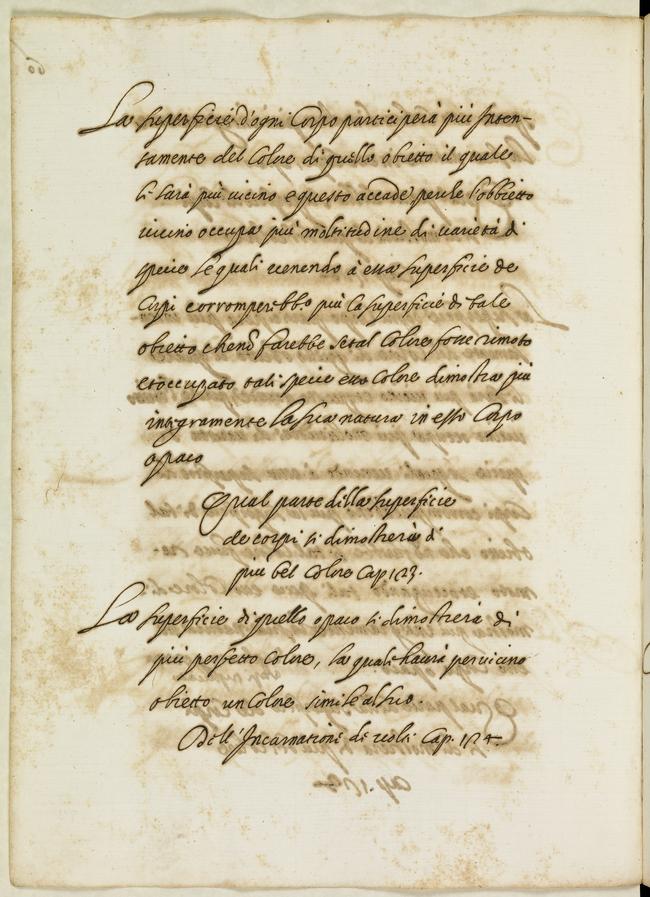 La superficie d'ogni Corpo participerà più Inten-
tamente del Colore di quello obietto il quale
li sarà più vicino e questo accade perche l'obbietto
vicino occupa più moltitudine di varietà di
specie le quali venendo à essa superficie de
Corpi corromperebbe più la superficie di tale
obietto che nō farebbe se tal Colore fosse rimoto
et occupato tali specie esso Colore dimostra più
integramente la sua natura in esso Corpo
opaco
Qual parte della superficie
de corpi si dimostrerà di
più bel Colore Cap 123.
La superficie di quello opaco si dimostrerà di
più perfetto Colore, la quali haurà per vicino
obietto un Colore simile al suo.
Dell' Incarnatione di volti Cap. 124.